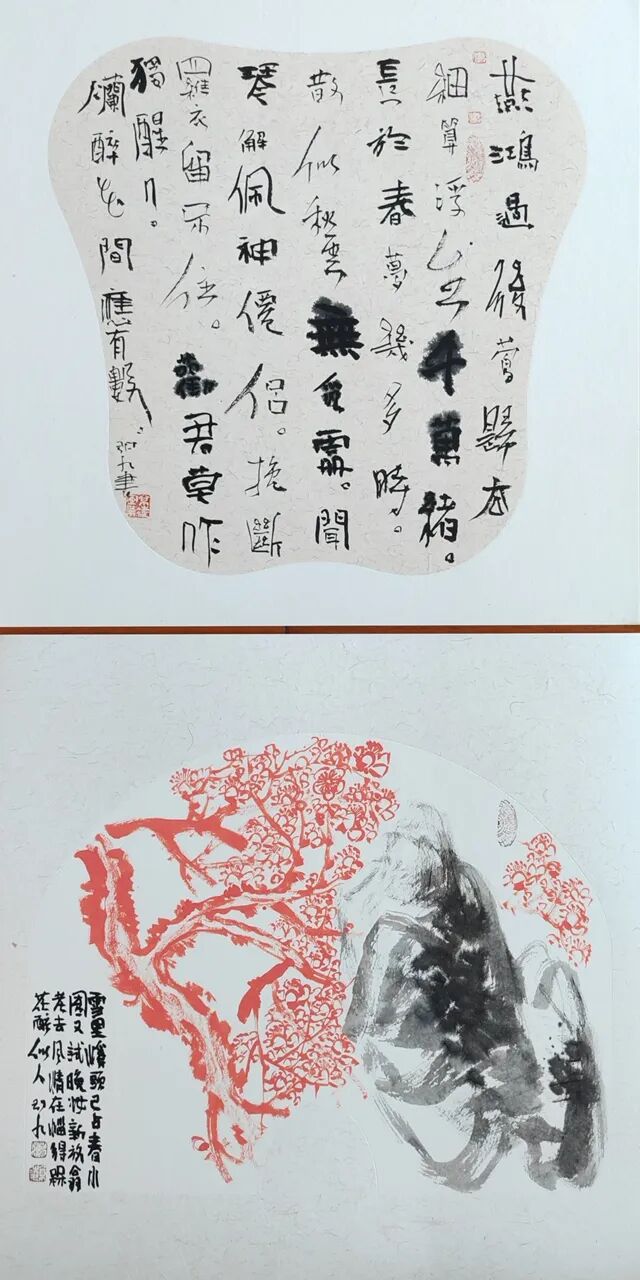 燕鴻過後鶯歸去
細算浮生千萬緒。
長於春夢幾多時。
散似秋雲無覓處。聞
琴解佩神僊侶。挽斷
羅衣留不住。勸君莫作
獨醒人。
爛醉花間應有數。
雪里溪頭已占春小
園又試晚妝新放翁
老去風情在惱得槑
花醉似人